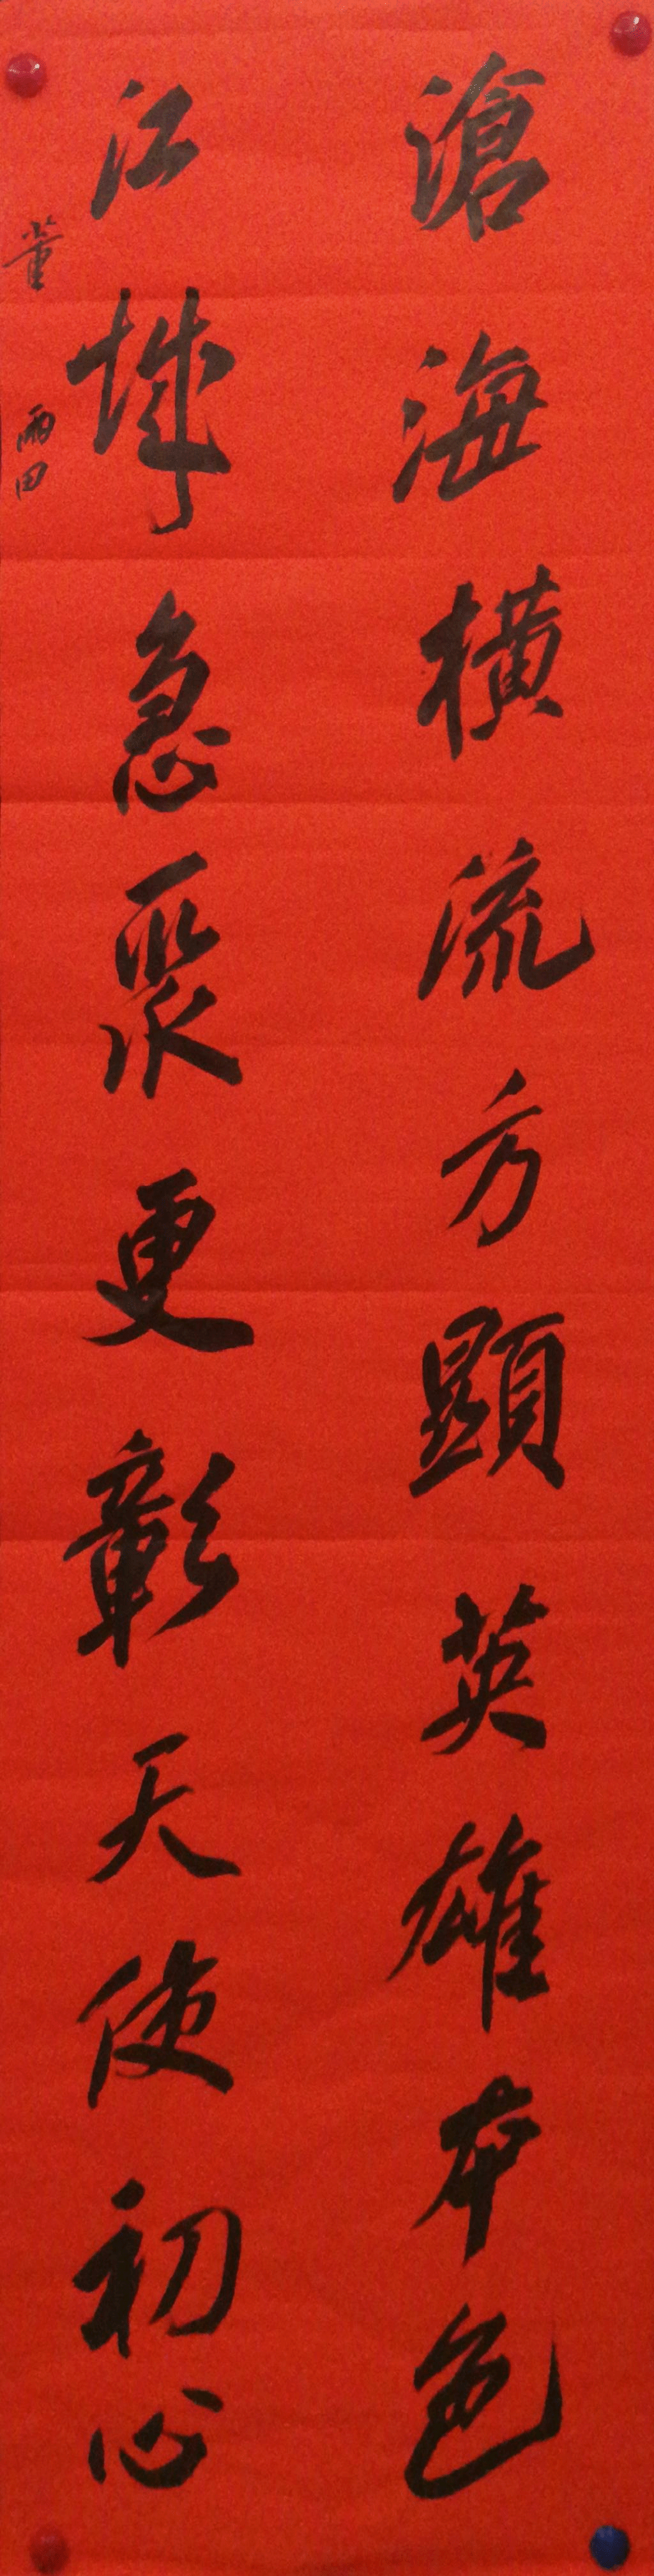 滄海橫流方顯英雄本色
江城急更彰天使初心
董雨田